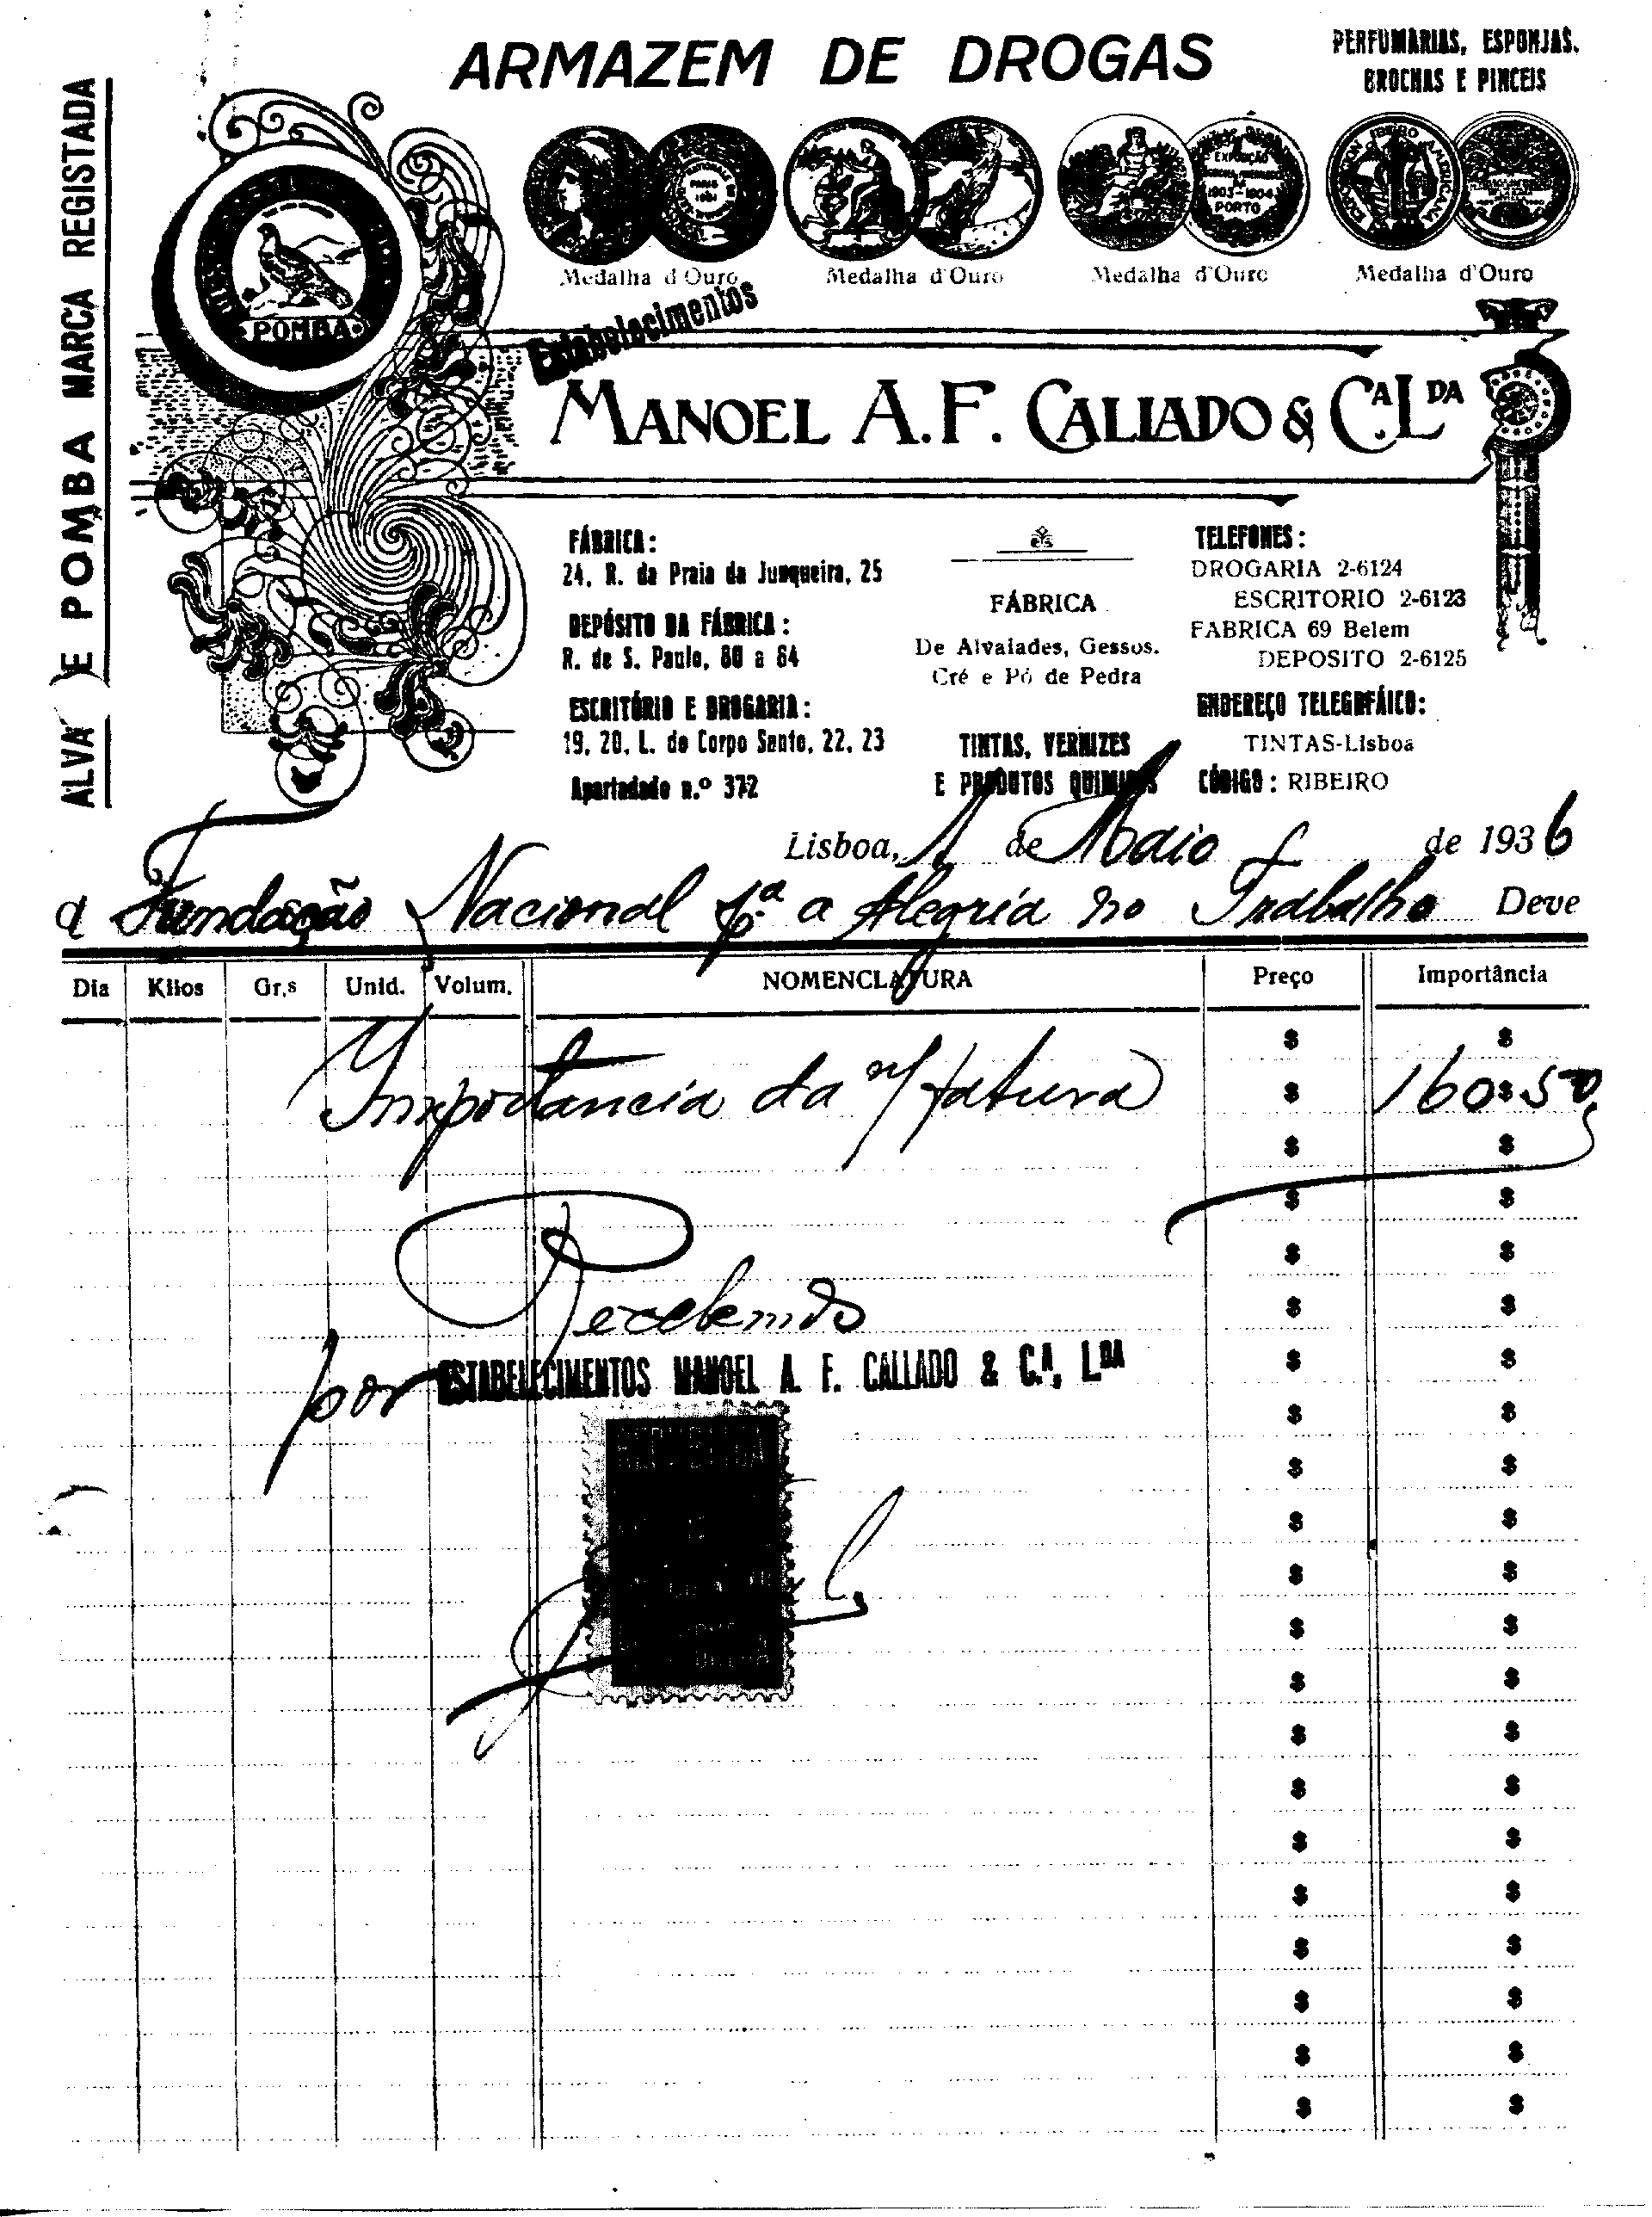 ARMAZEM DE DROGAS
PERFUMARIAS, ESPONJAS,
BROCHAS E PINCEIS
ALVA E POMBA MARCA REGISTADA
POMBA
EXPOSIÇÃO
1903-1904
PORTO
Medalha d'Ouro
Medalha d'Ouro
Medalha d'Ouro
Medalha d'Ouro
Estabelecimentos
MANOEL A. F. CALLADO & C.A L.DA
FÁBRICA:
24, R. da Praia da Junqueira, 25
DEPÓSITO DA FÁBRICA:
R. de S. Paulo, 80 a 84
ESCRITÓRIO E DROGARIA:
19, 20, L. do Corpo Santo, 22, 23
Apartadado n.º 372
FÁBRICA
De Alvaiades, Gessos.
Cré e Pó de Pedra
TINTAS, VERNIZES
E PRODUTOS QUIMICOS
TELEFONES:
DROGARIA 2-6124
ESCRITORIO 2-6123
FABRICA 69 Belem
DEPOSITO 2-6125
ENDEREÇO TELEGRFÁICO:
TINTAS-Lisboa
CÓDIGO: RIBEIRO
Lisboa, 1 de Maio de 1936
a Fundação Nacional p.ª a Alegria no Trabalho Deve
Dia Kilos Gr.s Unid. Volum. NOMENCLATURA Preço Importância
Importancia da n/ fatura 160$50
Recebemos
por ESTABELECIMENTOS MANOEL A. F. CALLADO & C.A, LDA